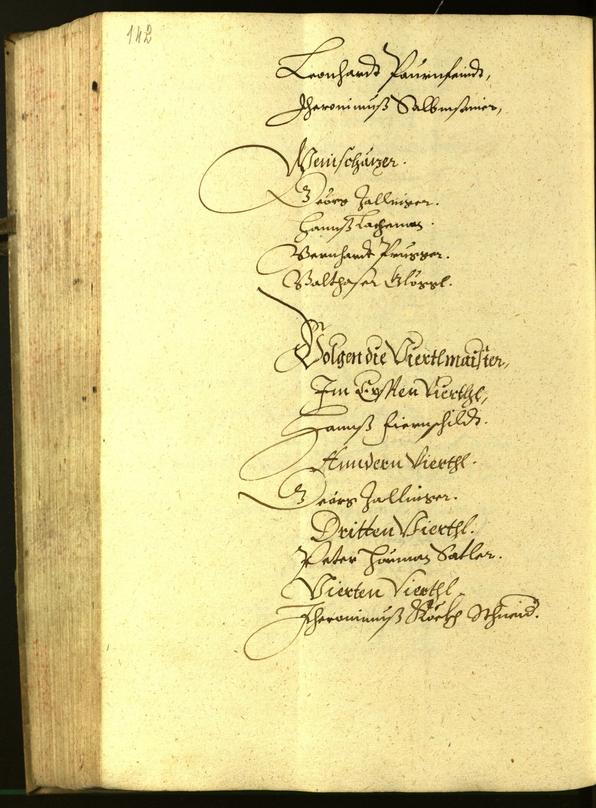 142
Leonhardt Paurnfeindt,
Jheronimuß Salbmstainer,
Weinschäzer.
Geörg Zallinger.
Hannß Lachman.
Bernhardt Prugger.
Balthaser Glöggl.
Volgen die Viertlmaister,
Im Ersten Vierthl,
Hannß Fiernschildt.
Anndern Vierthl.
Geörg Zallinger.
Dritten Vierthl.
Peter Hörman Satler.
Vierten Vierthl.
Jheronimuß Schneid.